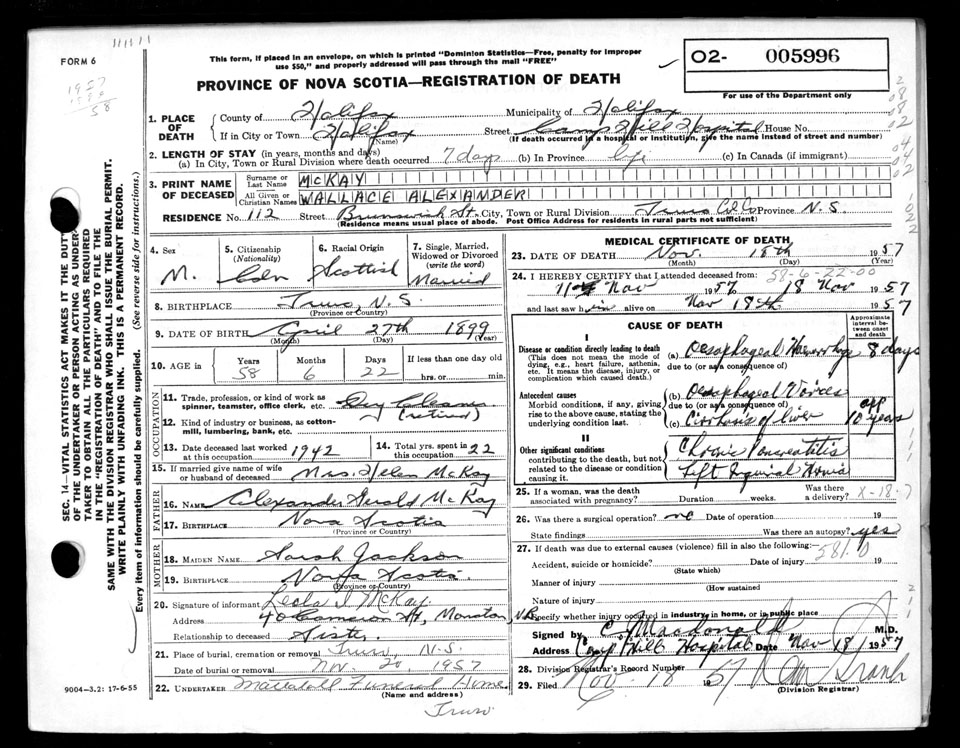 FORM 6
This form, if placed in an envelope, on which is printed "Dominion Statistics—Free, penalty for improper
use $50," and properly addressed will pass through the mail "FREE"
PROVINCE OF NOVA SCOTIA—REGISTRATION OF DEATH
O2- 005996
For use of the Department only
1957
1899
58
1. PLACE OF DEATH
County of Halifax Municipality of Halifax
If in City or Town Halifax Street Camp Hill Hospital House No.
(Name) (If death occurred in a hospital or institution, give the name instead of street and number)
2. LENGTH OF STAY (in years, months and days)
(a) In City, Town or Rural Division where death occurred 7 days (b) In Province life (c) In Canada (if immigrant)
3. PRINT NAME OF DECEASED
Surname or Last Name McKAY
All Given or Christian Names WALLACE ALEXANDER
RESIDENCE No. 112 Street Brunswick St. City, Town or Rural Division Truro Col Co Province N.S.
(Residence means usual place of abode. Post Office Address for residents in rural parts not sufficient)
4. Sex M.
5. Citizenship (Nationality) Cdn
6. Racial Origin Scottish
7. Single, Married, Widowed or Divorced (write the word) Married
8. BIRTHPLACE Truro, N.S.
(Province or Country)
9. DATE OF BIRTH April 27th 1899
(Month) (Day) (Year)
10. AGE in Years 58 Months 6 Days 22 If less than one day old
hrs. or min.
OCCUPATION
11. Trade, profession, or kind of work as
spinner, teamster, office clerk, etc. Dry Cleaner
(retired)
12. Kind of industry or business, as cotton-
mill, lumbering, bank, etc.
13. Date deceased last worked at this occupation 1942
14. Total yrs. spent in this occupation 22
15. If married give name of wife or husband of deceased Mrs. Helen McKay
FATHER
16. NAME Alexander Gerald McKay
17. BIRTHPLACE Nova Scotia
(Province or Country)
MOTHER
18. MAIDEN NAME Sarah Jackson
19. BIRTHPLACE Nova Scotia
(Province or Country)
20. Signature of informant McKay
Address 40 Cameron St, Moncton, N.B.
Relationship to deceased Sister
21. Place of burial, cremation or removal Truro, N.S.
Date of burial or removal Nov. 20, 1957
22. UNDERTAKER Mattatall Funeral Home
(Name and address)
Truro
9004-3.2: 17-6-55
MEDICAL CERTIFICATE OF DEATH
23. DATE OF DEATH Nov. 18th 1957
(Month) (Day)
24. I HEREBY CERTIFY that I attended deceased from: 58-6-22-00
11th Nov 1957 18 Nov 1957
and last saw him alive on Nov 18th 1957
CAUSE OF DEATH
Approximate interval between onset and death
I
Disease or condition directly leading to death
(This does not mean the mode of dying, e.g., heart failure, asthenia, etc. It means the disease, injury, or complication which caused death.)
(a) Oesophageal Haemorrhage 8 days
due to (or as a consequence of)
Antecedent causes
Morbid conditions, if any, giving rise to the above cause, stating the underlying condition last.
(b) Oesophageal Varices
due to (or as a consequence of)
(c) Cirrhosis of liver app 10 years
II
Other significant conditions
contributing to the death, but not related to the disease or condition causing it.
Chronic Pancreatitis
Left Inguinal Hernia
25. If a woman, was the death associated with pregnancy? Duration weeks. Was there a delivery? X-18-7
26. Was there a surgical operation? no Date of operation 19
State findings Was there an autopsy? yes
27. If death was due to external causes (violence) fill in also the following:— 581.0
Accident, suicide or homicide? Date of injury 19
(State which)
Manner of injury
(How sustained
Nature of injury
Specify whether injury occurred in industry, in home, or in public place
Signed by C Macdonald M.D.
Address Camp Hill Hospital Date Nov 18 1957
28. Division Registrar's Record Number
29. Filed Nov. 18 1957
(Division Registrar)
SEC. 14—VITAL STATISTICS ACT MAKES IT THE DUTY
OF THE UNDERTAKER OR PERSON ACTING AS UNDER-
TAKER TO OBTAIN ALL THE PARTICULARS REQUIRED
IN THE "REGISTRATION OF DEATH" AND TO FILE THE
SAME WITH THE DIVISION REGISTRAR WHO SHALL ISSUE THE BURIAL PERMIT.
WRITE PLAINLY WITH UNFADING INK. THIS IS A PERMANENT RECORD.
Every item of information should be carefully supplied. (See reverse side for instructions.)